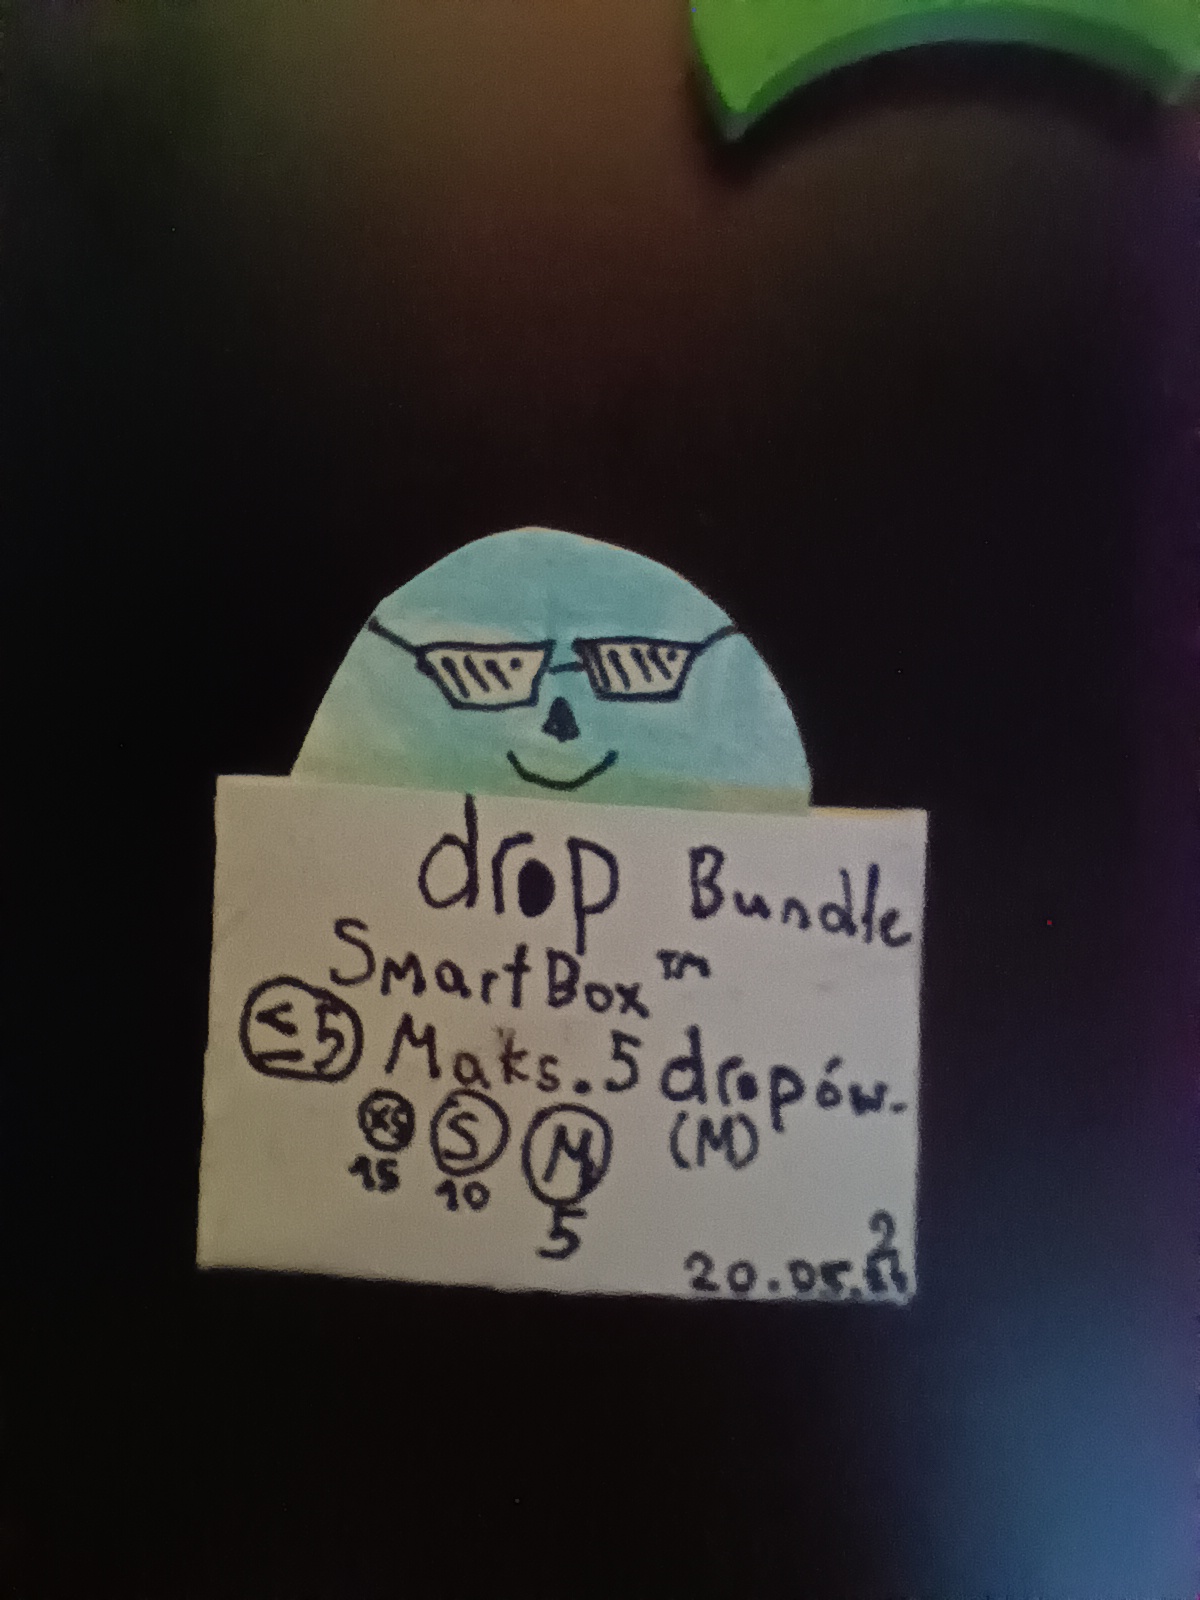 drop Bundle
SmartBox™
≤5 Maks. 5 dropów.
XS S M (M)
15 10 5
20.05.